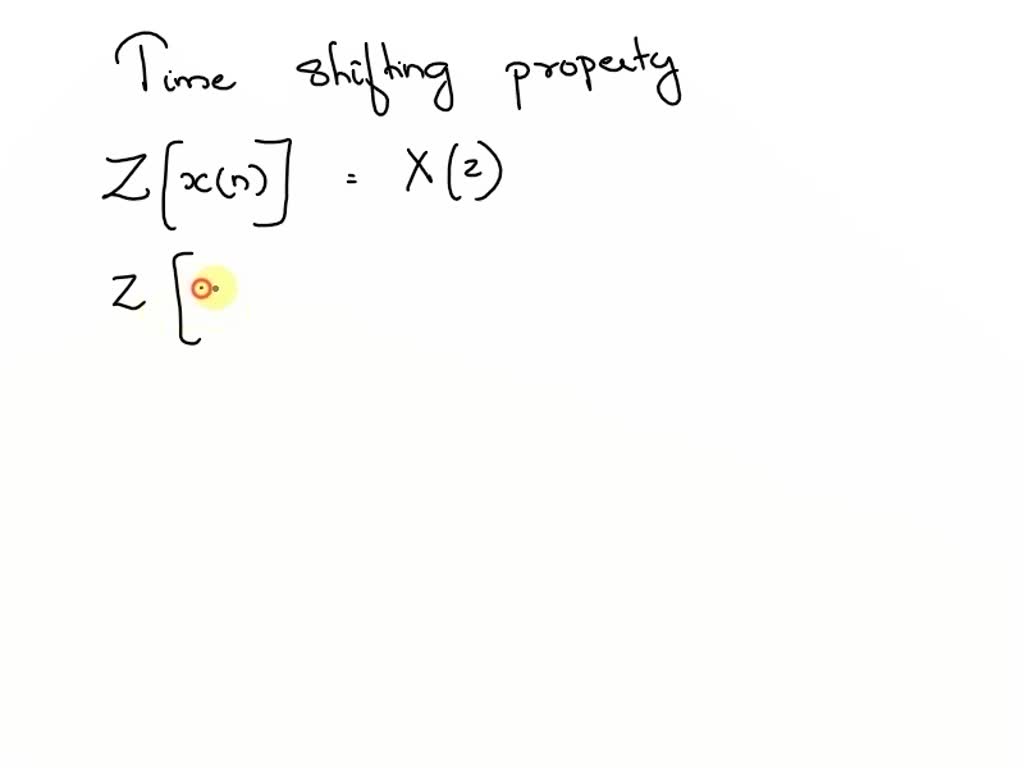 Time shifting property
Z[x(n)] = X(z)
Z [